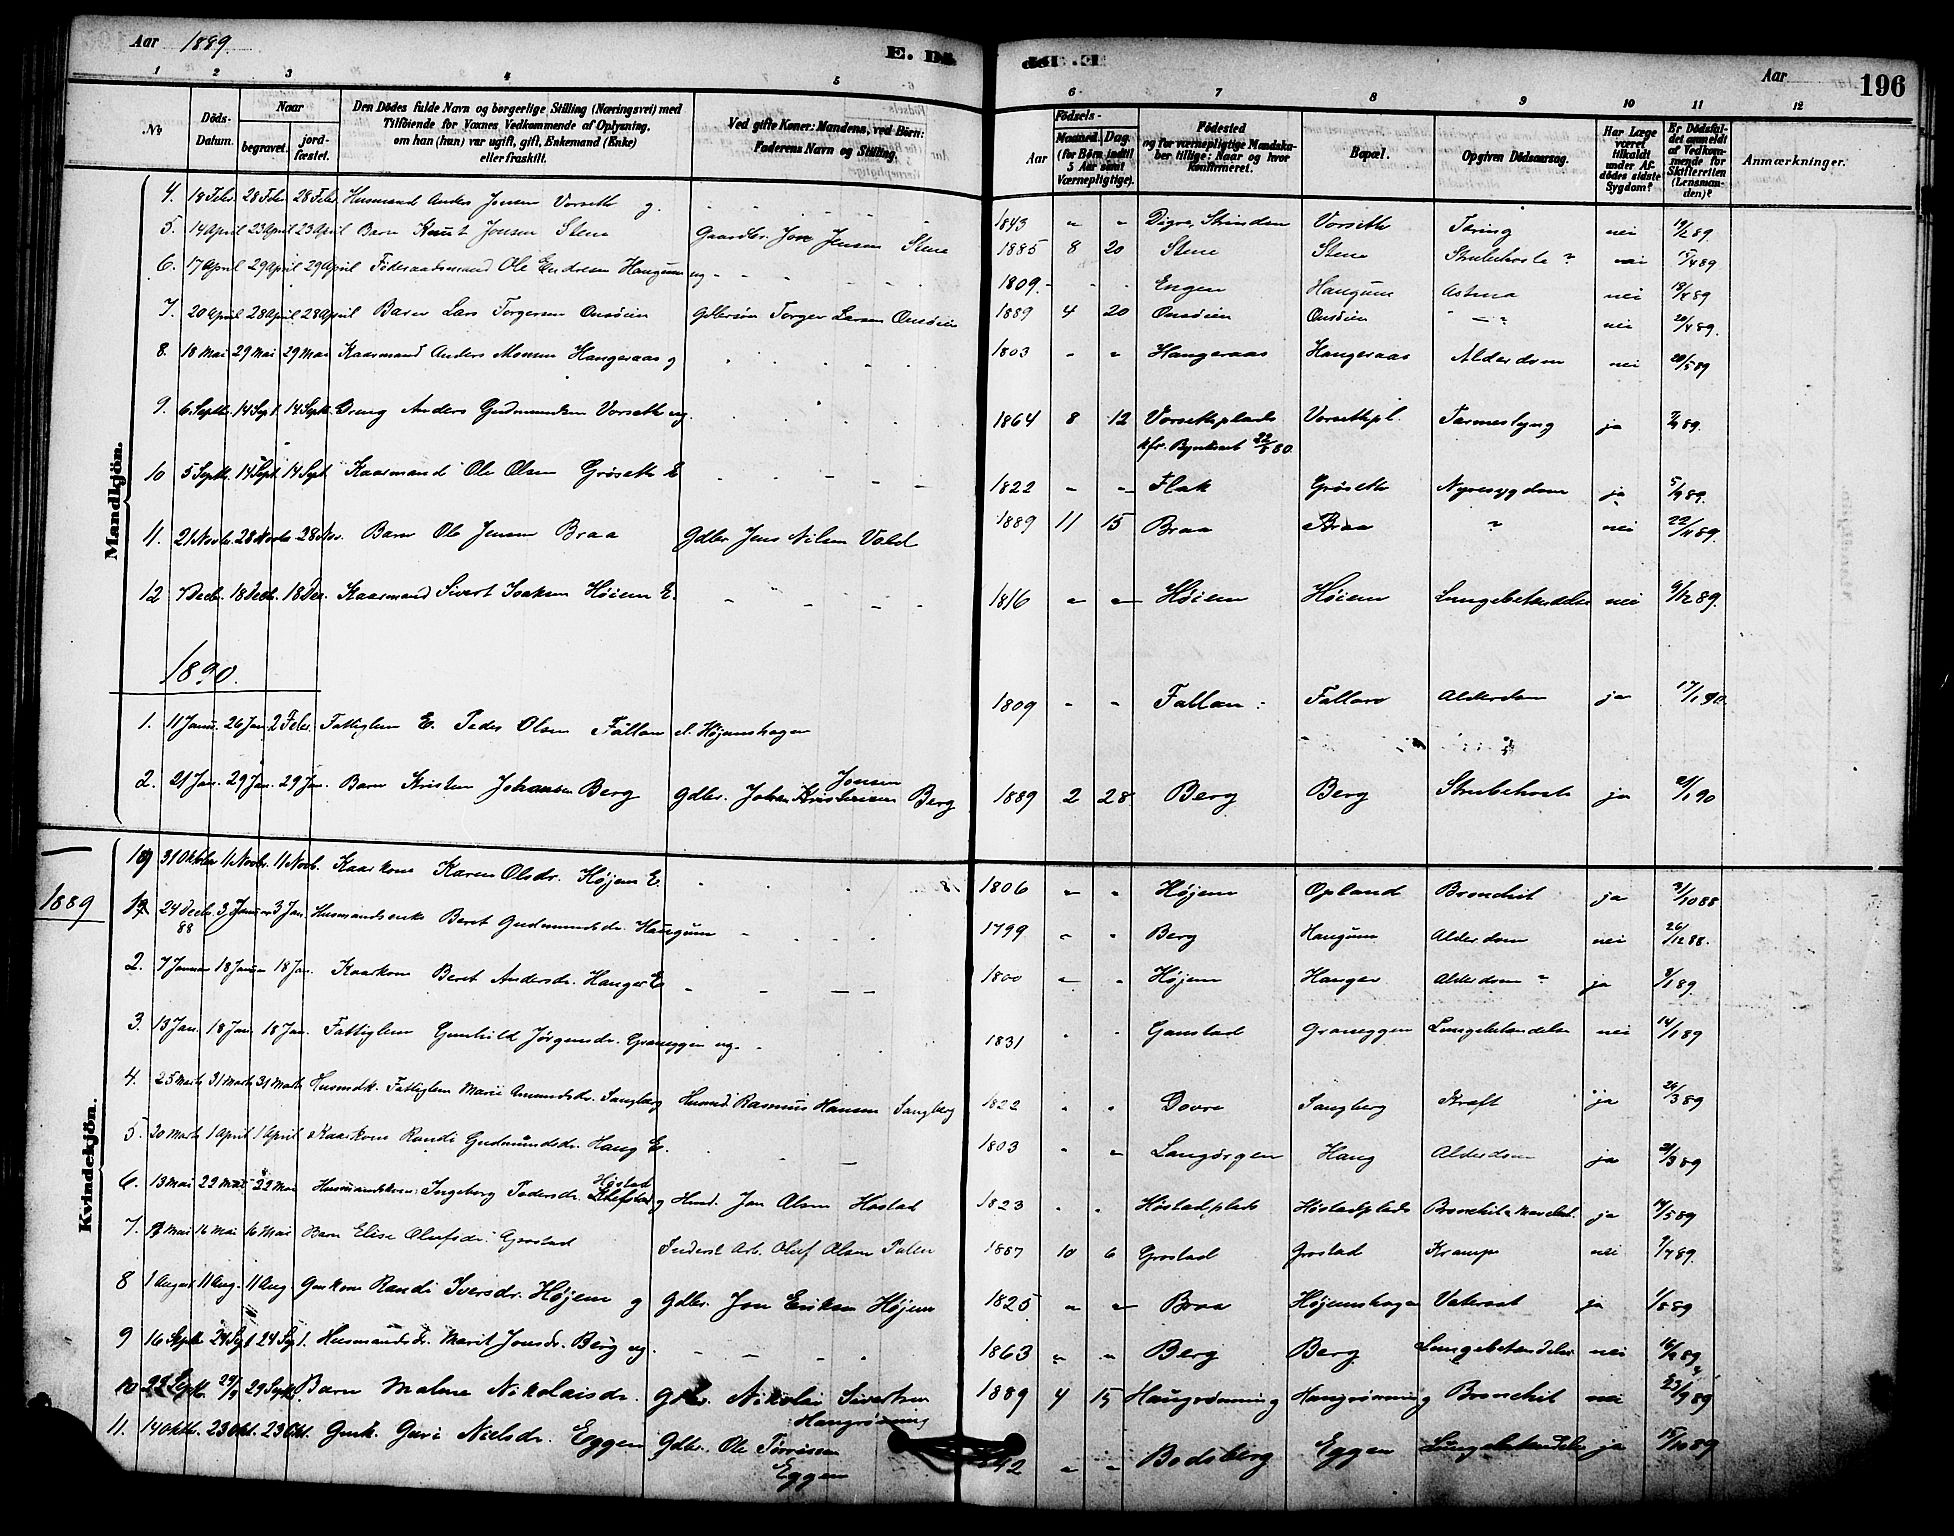 Aar 1889.
E. Dö
Aar
196
1 2 3 4 5 6 7 8 9 10 11 12
No Döds-Datum. Naar begravet. jordfæstet. Den Dödes fulde Navn og borgerlige Stilling (Næringsvei) med Tilföiende for Voxnes Vedkommende af Oplysning, om han (hun) var ugift, gift, Enkemand (Enke) eller fraskilt. Ved gifte Koner: Mandens, ved Börn: Faderens Navn og Stilling. Födsels- Aar Maaned. Dag. (for Börn indtil 5 Aar samt Værnepligtige). Födested og for værnepligtige Mandskaber tillige: Naar og hvor konfirmeret. Bopæl. Opgiven Dödsaarsag. Har Læge været tilkaldt under Afdödes sidste Sygdom? Er Dödsfaldet anmeldt af Vedkommende for Skifteretten (Lensmanden)? Anmærkninger.
Mandkjön.
4. 18 Febr. 28 Febr. 28 Febr. Husmand Anders Jonsen Vorseth g. 1843 " " Digre, Strinden Vorseth Tæring nei 19/2 89.
5. 14 April 23 April 23 April Barn Knut Jonsen Stene Gaardbr. Jon Jensen Stene 1885 8 20 Stene Stene Strubehoste ? nei /4 89
6. 17 April 29 April 29 April Føderaadsmand Ole Endresen Haugum ug 1809. Engen Haugum Astma nei 18/4 89
7. 20 April 28 April 28 April Barn Lars Torgersen Onsøien Gdbrsøn Torger Larsen Onsøien 1889 4 20 Onsøien Onsøien " — " nei 20/4 89.
8. 18 Mai 29 Mai 29 Mai Kaarmand Anders Monsen Hangeraas g 1803 " " Hangeraas Hangeraas Alderdom nei 20/5 89
9. 6 Septbr. 14 Sept. 14 Sept. Dreng Anders Gudmundsen Vorseth ug. 1864 8 12 Vorsethplads Vorsethpl. Tarmeslyng ja 7/9 89.
kfr. Bynesset 80
10 5 Septbr. 14 Sept. 14 Sept. Kaarmand Ole Olsen Grøseth E 1822 " " Flak Grøseth Nyresygdom ja 5/9 89.
11. 21 Novbr. 28 Novbr. 28 Nov. Barn Ole Jensen Braa Gdbr. Jens Nilsen Vold 1889 11 15 Braa Braa ? nei 22/11 89.
12 7 Decb. 18 Decb. 18 Dec. Kaarmand Sivert Isaksen Høiem E. 1816 " " Høiem Høiem Lungebetændelse nei 9/12 89.
1890.
1. 11 Janu. 26 Jan. 2 Febr. Fattiglem E. Peder Olsen Fallan N. Højemshagen 1809 " " Fallan Fallan Alderdom ja 17/1 90.
2. 21 Jan. 29 Jan. 29 Jan. Barn Kristen Johansen Berg Gdbr. Johan Kristensen Jonsen Berg 1889 2 28 Berg Berg Strubehoste ja 21/1 90
Kvindekjön.
19 31 Oktbr. 11 Novb. 11 Novb. Kaarkone Karen Olsdr. Højem E. 1806 " " Højem Opland Bronchit ja 3/10 88
1889
1 24 Decbr. 88 3 Januar 3 Jan. Husmandsenke Beret Gudmundsdr. Haugum 1799 " " Berg Haugum Alderdom nei 26/12 88.
2. 7 Januar 18 Januar 18 Jan. Kaarkone Beret Andersdr. Hanger E. 1800 " " Højem Hanger Alderdom ? ja 9/1 89.
3. 13 Jan. 18 Jan. 18 Jan. Fattiglem Gunhild Jørgensdr. Graneggen ug. 1831 " " Ganstad Graneggen Lungebetændelse nei 14/1 89
4. 25 Marts 31 Marts 31 Marts Husmdk. Fattiglem Marie Amundsdr. Sangberg Husmd. Rasmus Hansen Sangberg 1822 " " Dovre Sangberg Kræft ja 26/3 89
5. 20 Marts 1 April 1 April Kaarkone Randi Gudmundsdr. Haug E. 1803 " " Langørgen Haug Alderdom ja 21/3 89
6. 13 Mai 22 Mai 22 Mai Husmandskone Ingeborg Pedersdr. Høstad g Husmd. Jon Olsen Høstad 1823 " " Høstadplads Høstadplads Bronchit ja 14/5 89
7. Mai 16 Mai 16 Mai Barn Elise Olufsdr. Grostad Inderst Arb. Oluf Olsen Palen 1887 10 6 Grostad Grostad Krampe nei 89.
8 1 August 11 Aug. 11 Aug. Gmkone Randi Iversdr. Højem g Gdbr. Jon Eriksen Højem 1825 " " Braa Højemshagen Vatersot ja 1/8 89
9 16 Septbr. 24 Sept. 24 Sept. Husmandsdr. Marit Jonsdr. Berg ug. 1863 " " Berg Berg Lungebetændelse nei 18/9 89
10 22 Septbr. 29/9 29 Septbr. Barn Malene Nikolaisdr. Gdbr. Nikolai Sivertsen Haugrønning 1889 4 15 Haugrønning Haugrønning Bronchit nei 23/9 89
11. 14 Oktbr. 23 Okt. 23 Okt. Gmk. Guri Nielsdr. Eggen Gdbr. Ole Torrissen Eggen 42 " " Bodsberg Eggen Lungebetændelse ja 15/10 89